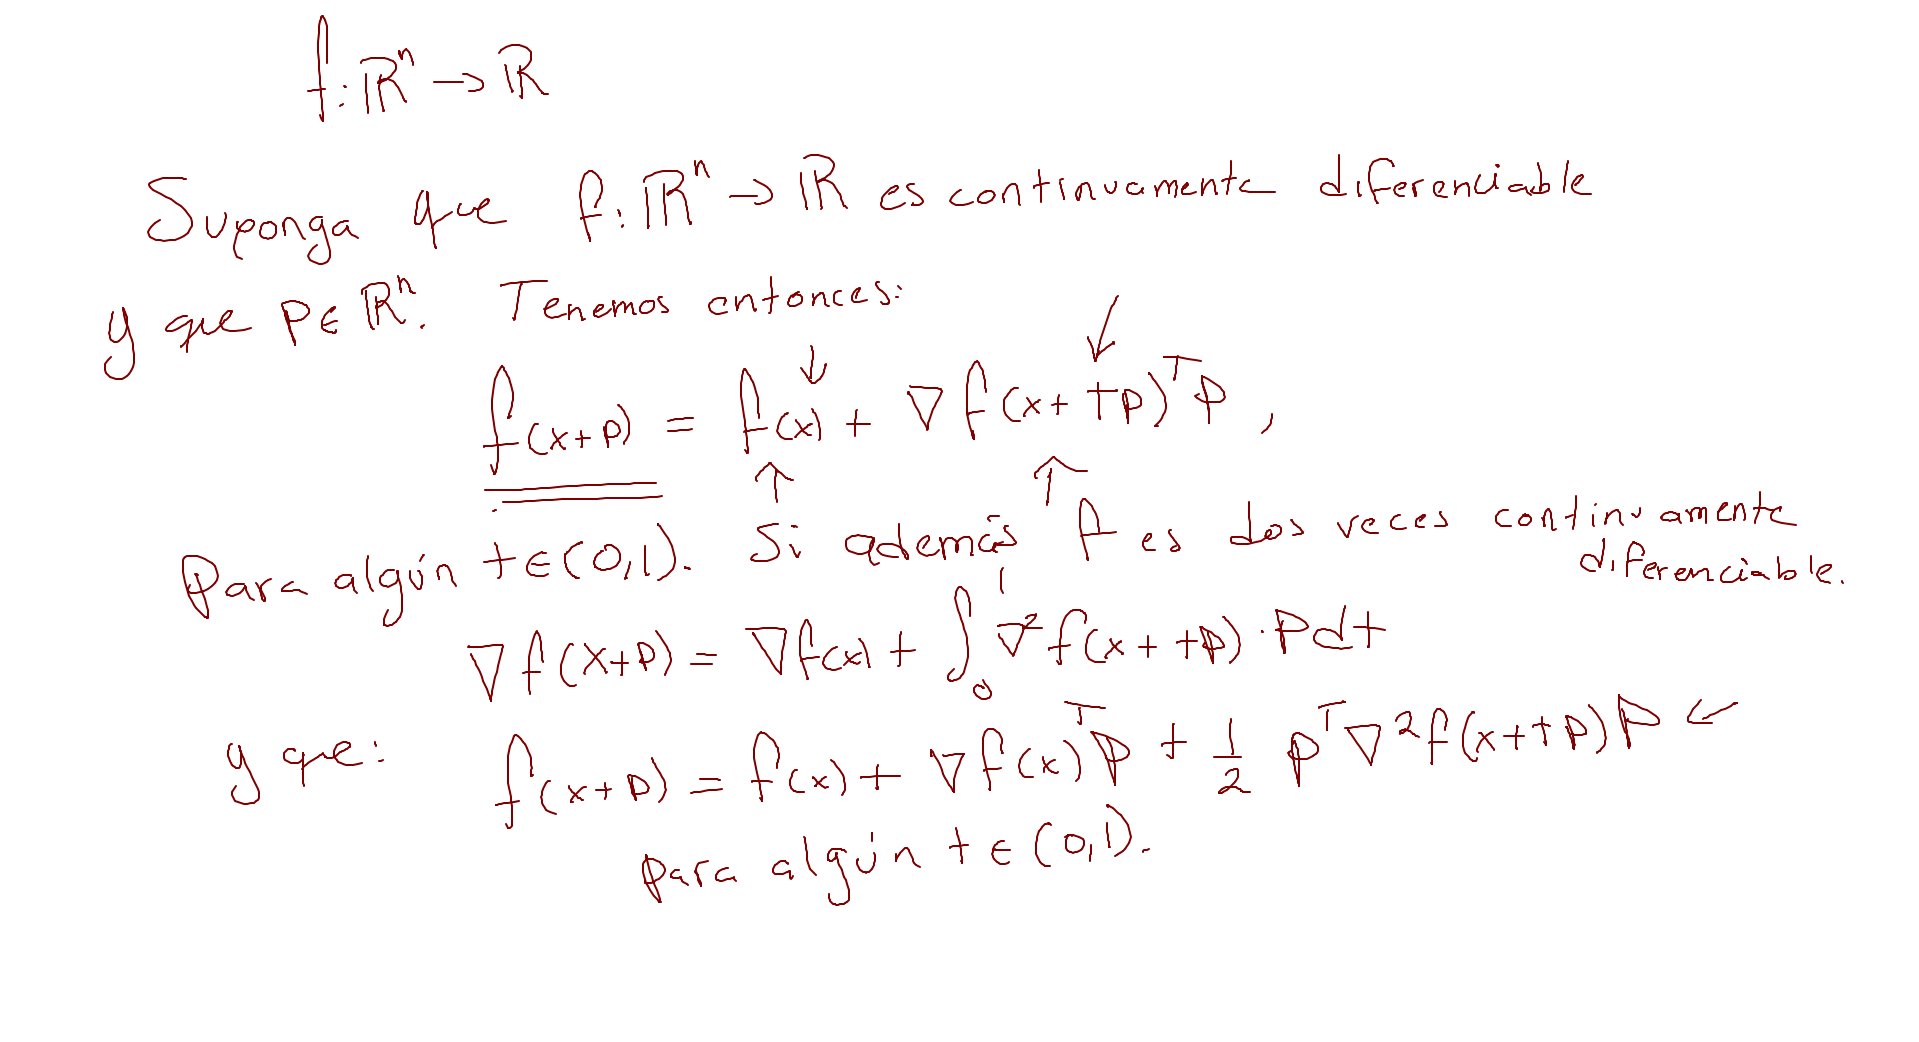 f: ℝⁿ → ℝ
Suponga que f: ℝⁿ → ℝ es continuamente diferenciable
y que p ∈ ℝⁿ. Tenemos entonces:
f(x+p) = f(x) + ∇f(x+tp)ᵀp,
Para algún t∈(0,1). Si además f es dos veces continuamente
diferenciable.
∇f(x+p) = ∇f(x) + ∫₀¹ ∇²f(x+tp)·p dt
y que: f(x+p) = f(x) + ∇f(x)ᵀp + 1/2 pᵀ∇²f(x+tp)p
para algún t ∈ (0,1).